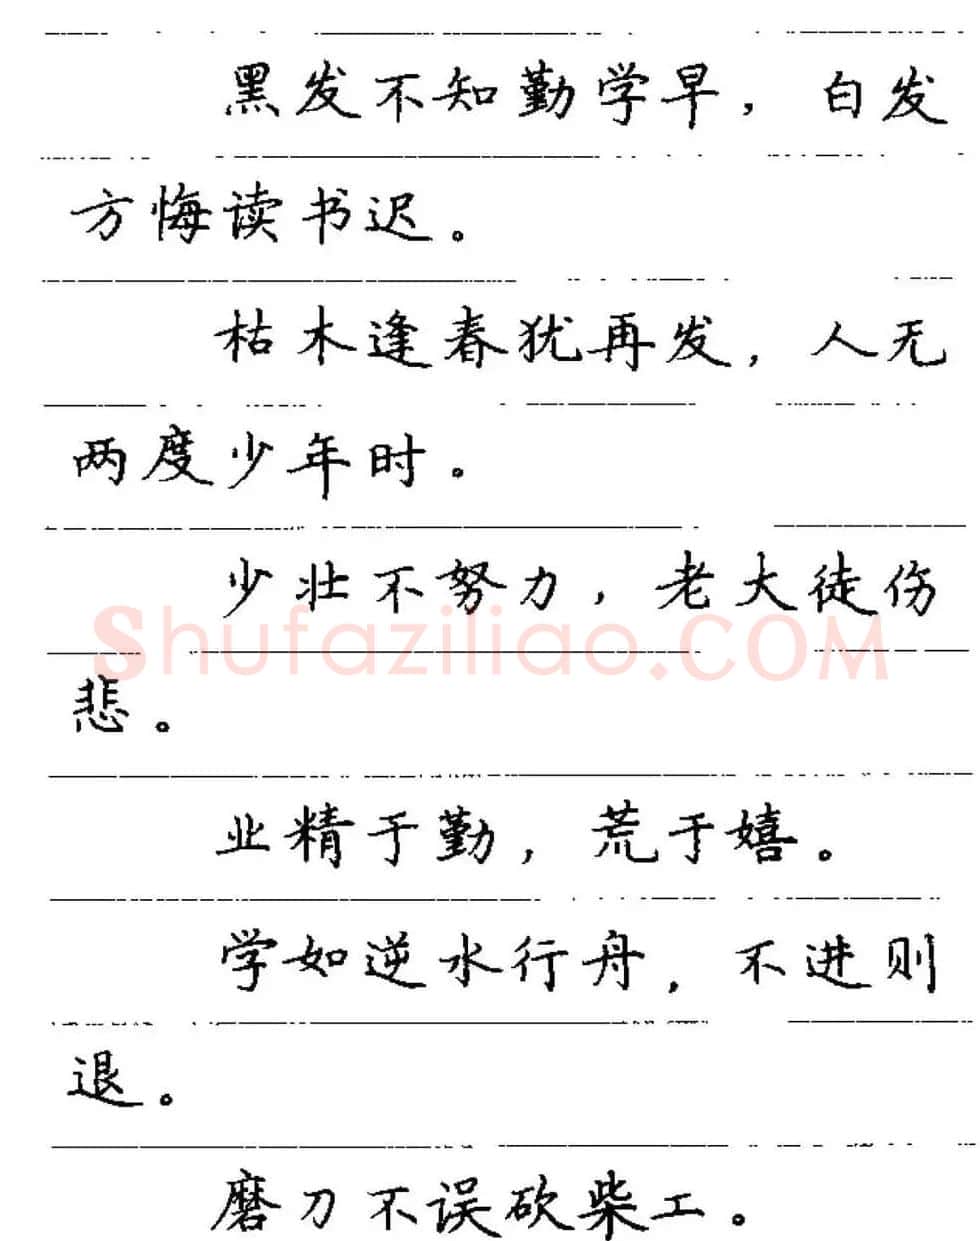 黑发不知勤学早，白发
方悔读书迟。
枯木逢春犹再发，人无
两度少年时。
少壮不努力，老大徒伤
Shufaziliao.COM
悲。
业精于勤，荒于嬉。
学如逆水行舟，不进则
退。
磨刀不误砍柴工。